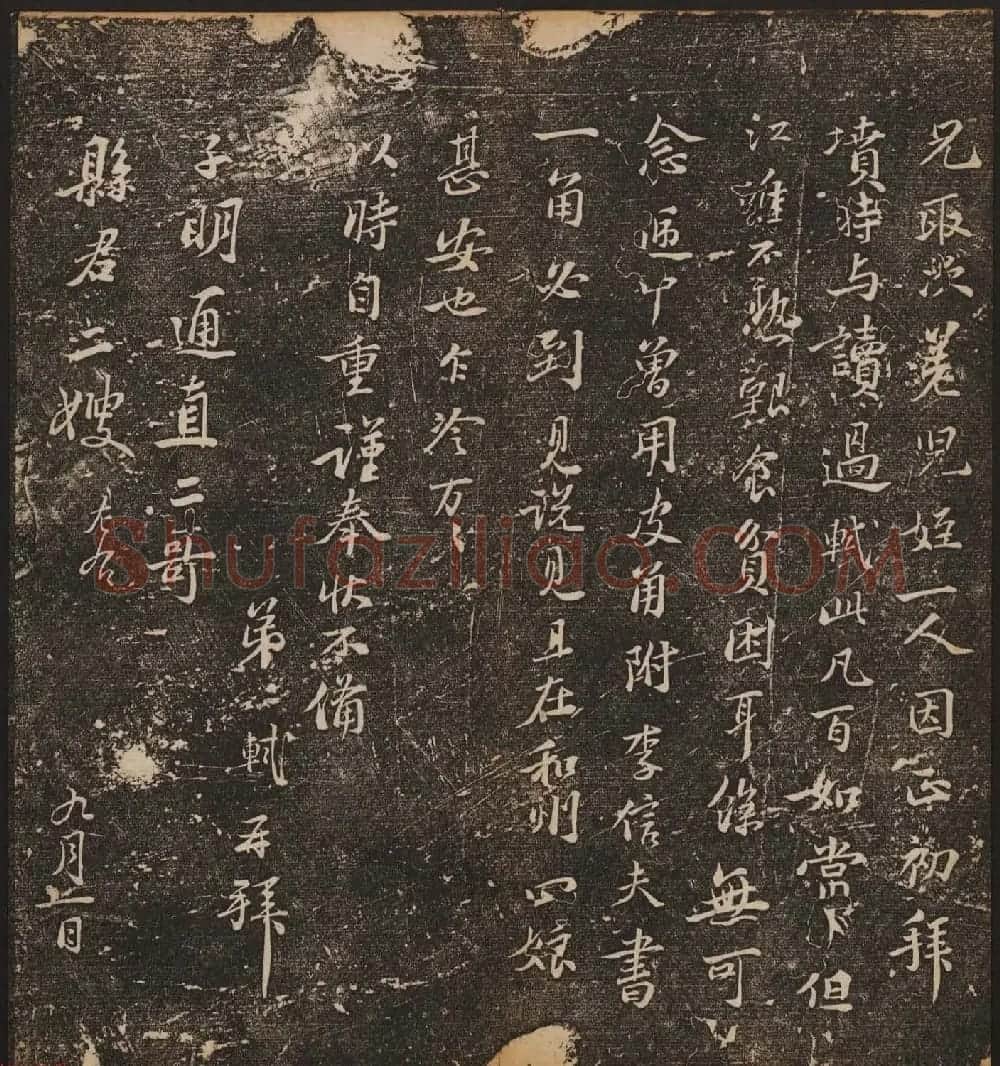 兄取次差児姪一人因正初拜
墳時与讀過軾此凡百如常但
江不熟艱食貧困耳餘無可
念逓中曾用皮角附李信夫書
一角必到見説見且在和州四娘
甚安也乍冷万
以時自重謹奉状不備
弟軾再拜
子明通直二哥
縣君二嫂左右
九月日
Shufaziliao.COM